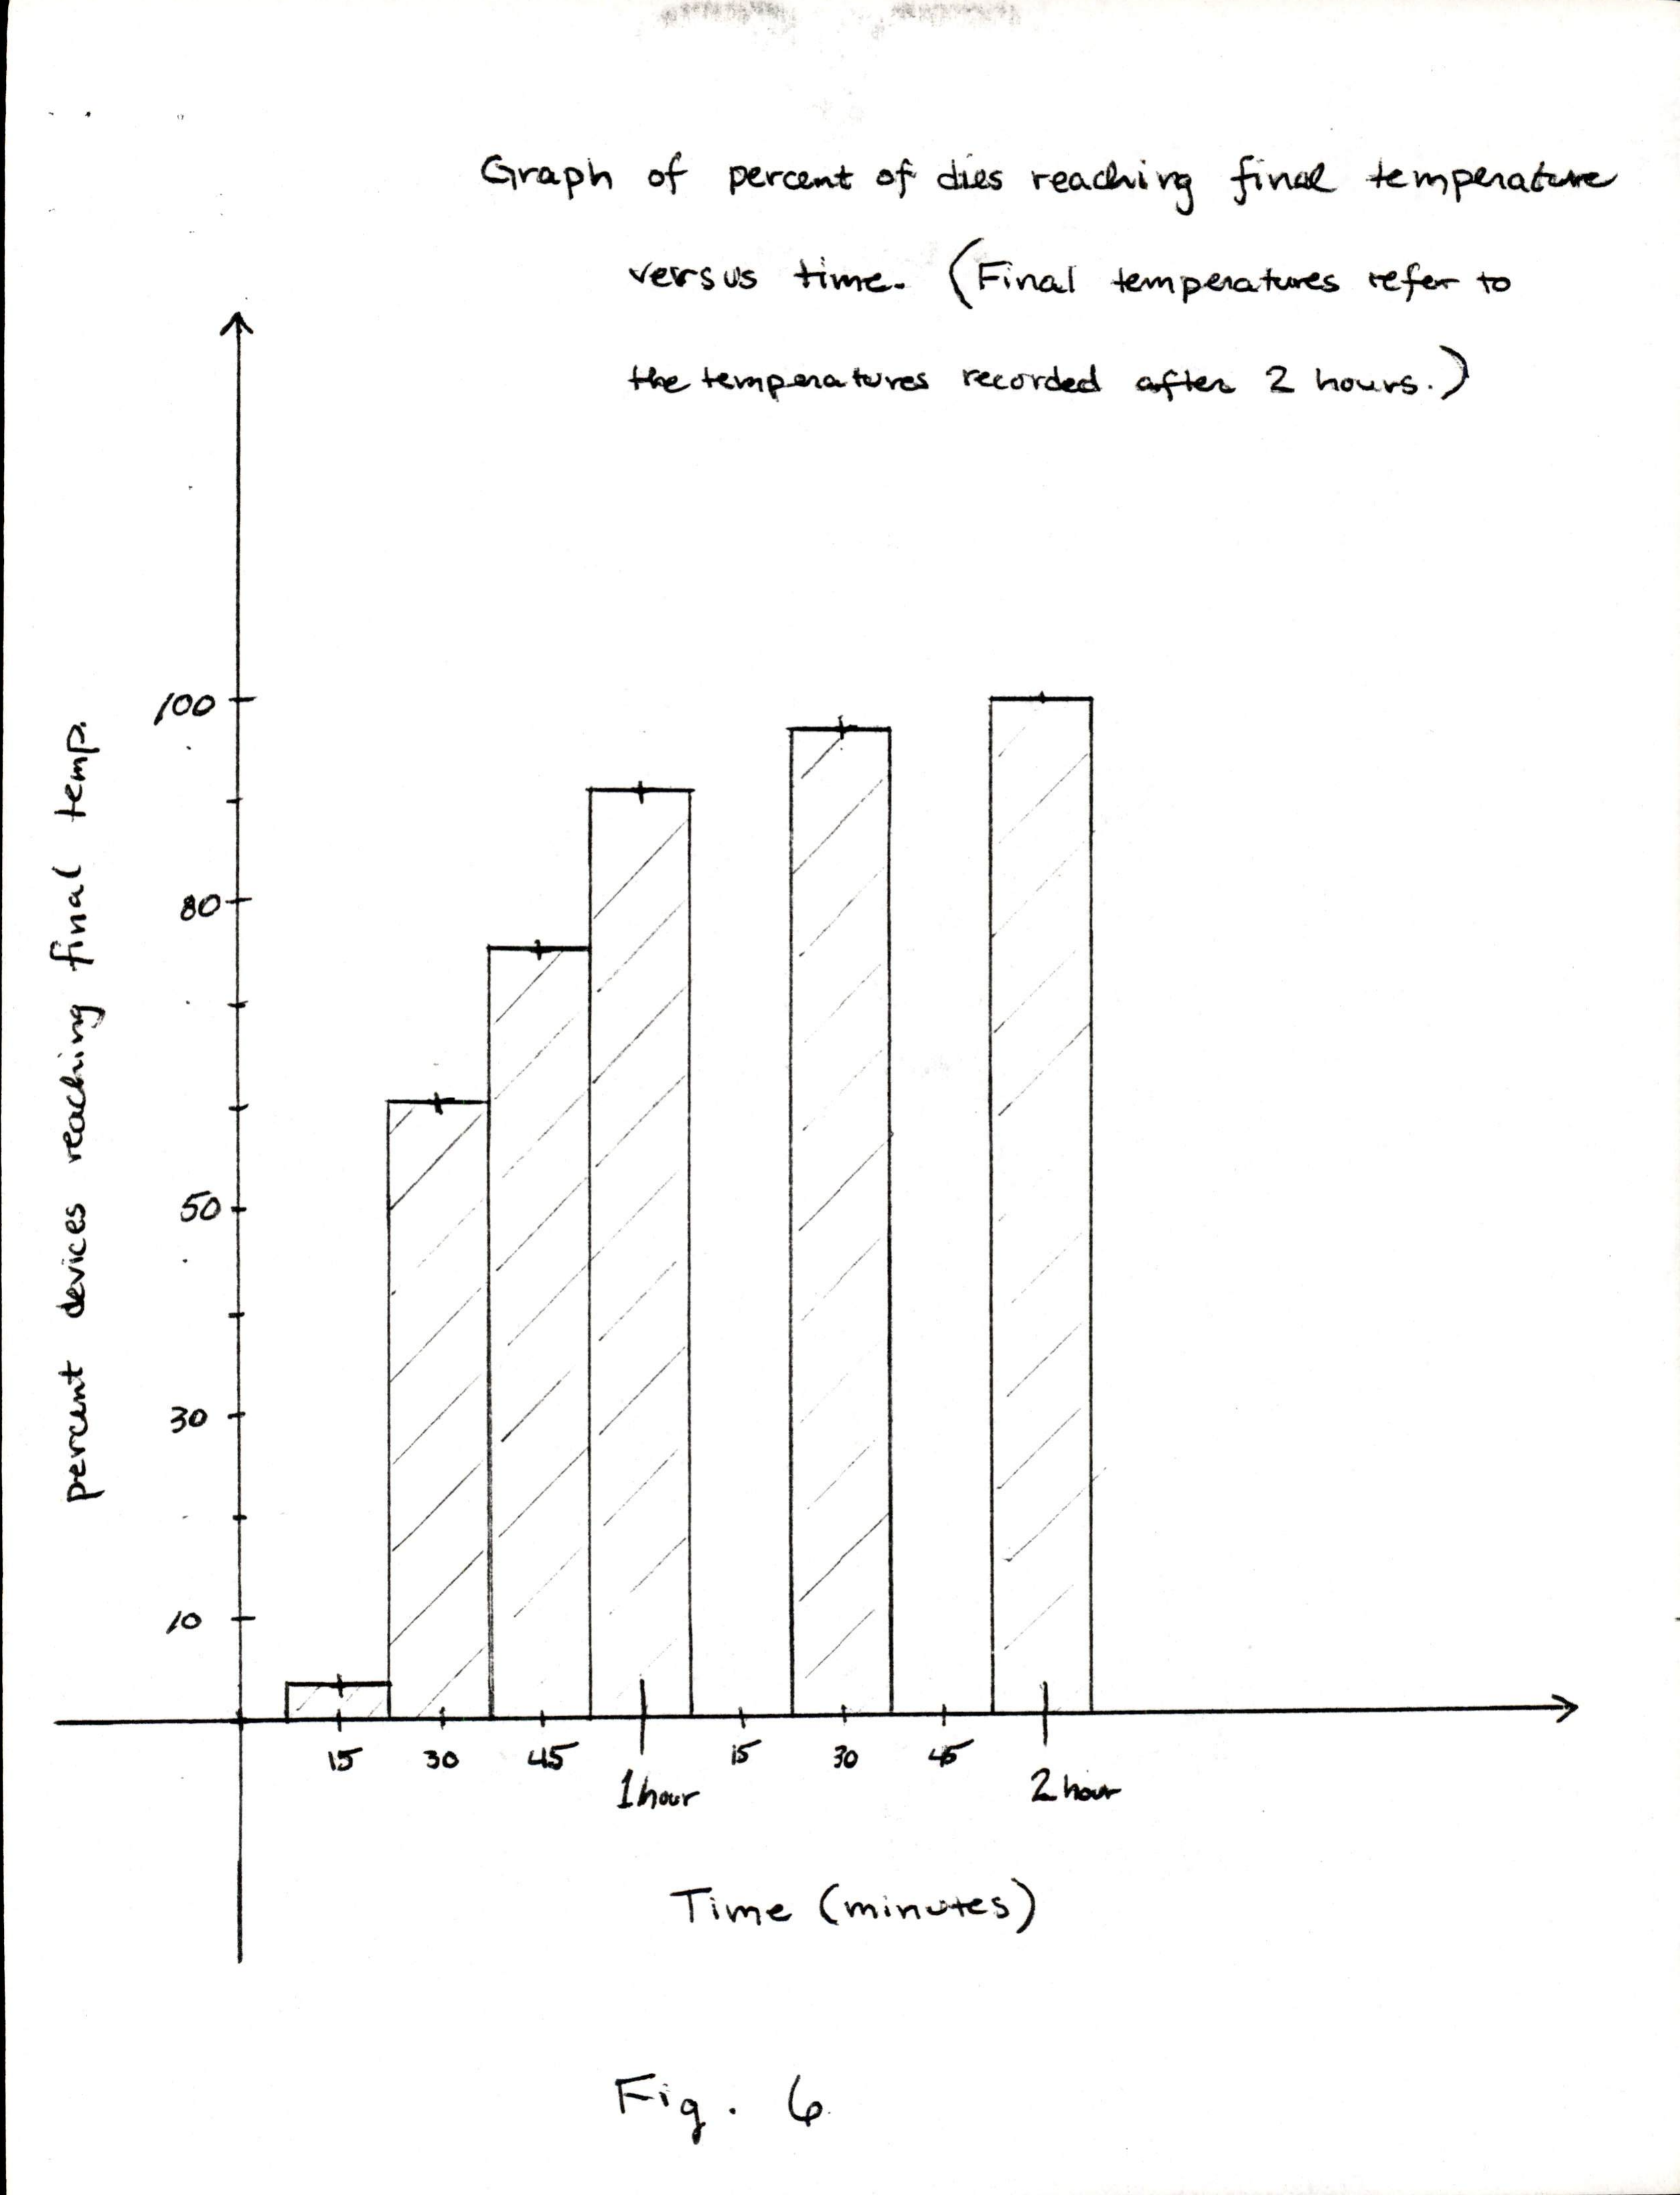 Graph of percent of dies reaching final temperature
versus time. (Final temperatures refer to
the temperatures recorded after 2 hours.)
percent devices reaching final temp.
100
80
50
30
10
15 30 45 1 hour 15 30 45 2 hour
Time (minutes)
Fig. 6